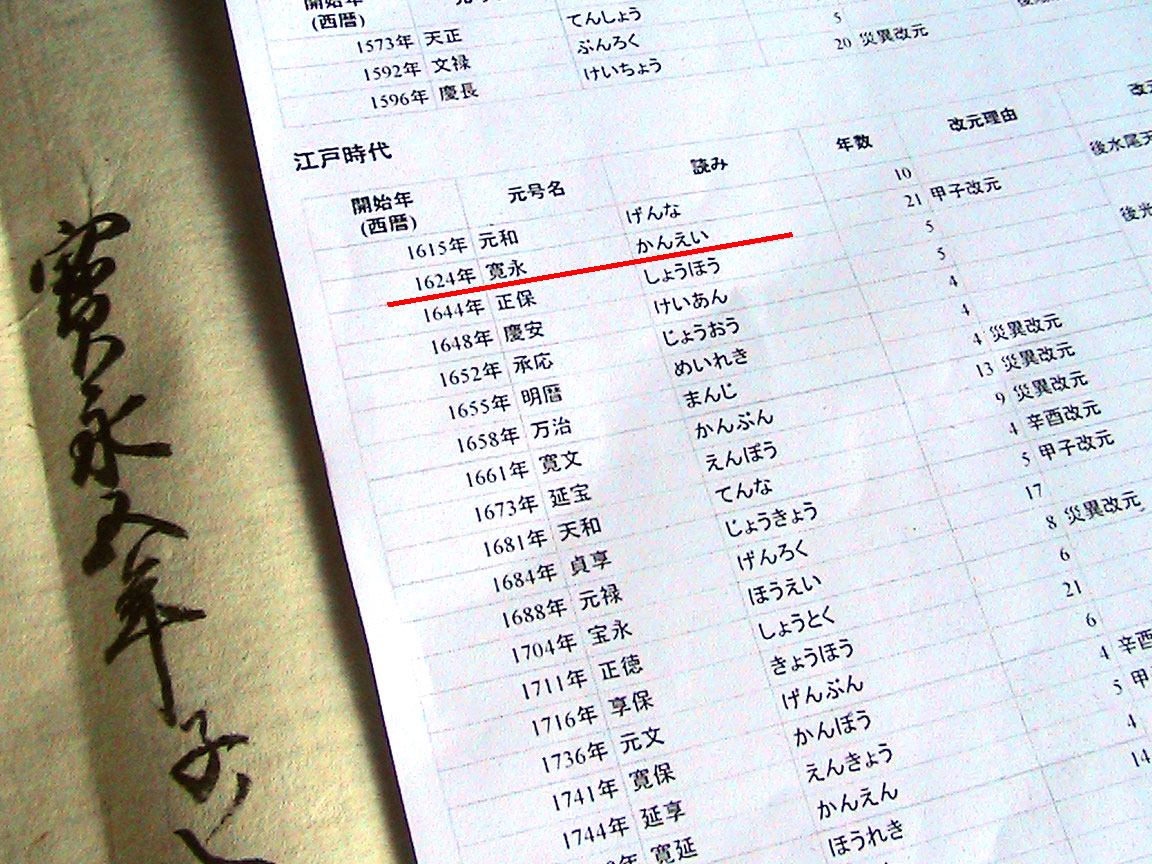 開始年
(西暦)
1573年 天正 てんしょう
1592年 文禄 ぶんろく 5
1596年 慶長 けいちょう 20 災異改元
江戸時代
開始年
(西暦) 元号名 読み 年数 改元理由 改元
1615年 元和 げんな 10 後水尾天
1624年 寛永 かんえい 21 甲子改元
1644年 正保 しょうほう 5 後光
1648年 慶安 けいあん 5
1652年 承応 じょうおう 4
1655年 明暦 めいれき 4
1658年 万治 まんじ 4 災異改元
1661年 寛文 かんぶん 13 災異改元
1673年 延宝 えんぽう 9 災異改元
1681年 天和 てんな 4 辛酉改元
1684年 貞享 じょうきょう 5 甲子改元
1688年 元禄 げんろく 17
1704年 宝永 ほうえい 8 災異改元
1711年 正徳 しょうとく 6
1716年 享保 きょうほう 21
1736年 元文 げんぶん 6
1741年 寛保 かんぽう 4 辛酉
1744年 延享 えんきょう 5 甲
年 寛延 かんえん 4
ほうれき 14
寳永五年子